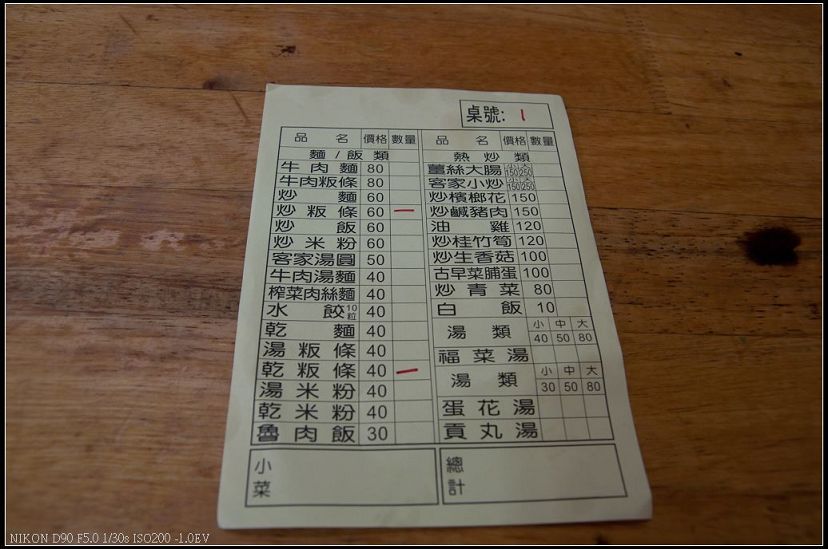 桌號: 1
品 名 價格 數量 品 名 價格 數量
麵/飯 類 熱 炒 類
牛 肉 麵 80 薑絲大腸 150 250
牛肉粄條 80 客家小炒 150 250
炒 麵 60 炒檳榔花 150
炒 粄 條 60 一 炒鹹豬肉 150
炒 飯 60 油 雞 120
炒 米 粉 60 炒桂竹筍 120
客家湯圓 50 炒生香菇 100
牛肉湯麵 40 古早菜脯蛋 100
榨菜肉絲麵 40 炒 青 菜 80
水 餃 10粒 40 白 飯 10
乾 麵 40 湯 類 小 中 大
40 50 80
湯 粄 條 40 福 菜 湯
乾 粄 條 40 一 湯 類 小 中 大
30 50 80
湯 米 粉 40
乾 米 粉 40 蛋 花 湯
魯 肉 飯 30 貢 丸 湯
小菜 總計
NIKON D90 F5.0 1/30s ISO200 -1.0EV